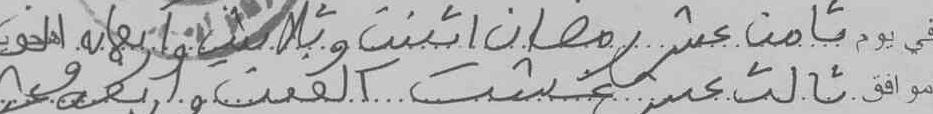 في يوم ثامن عشر رمضان اثنين وثلاثين واربعمايه
موافق ثالث عشر غشت الفين واربعة عشر